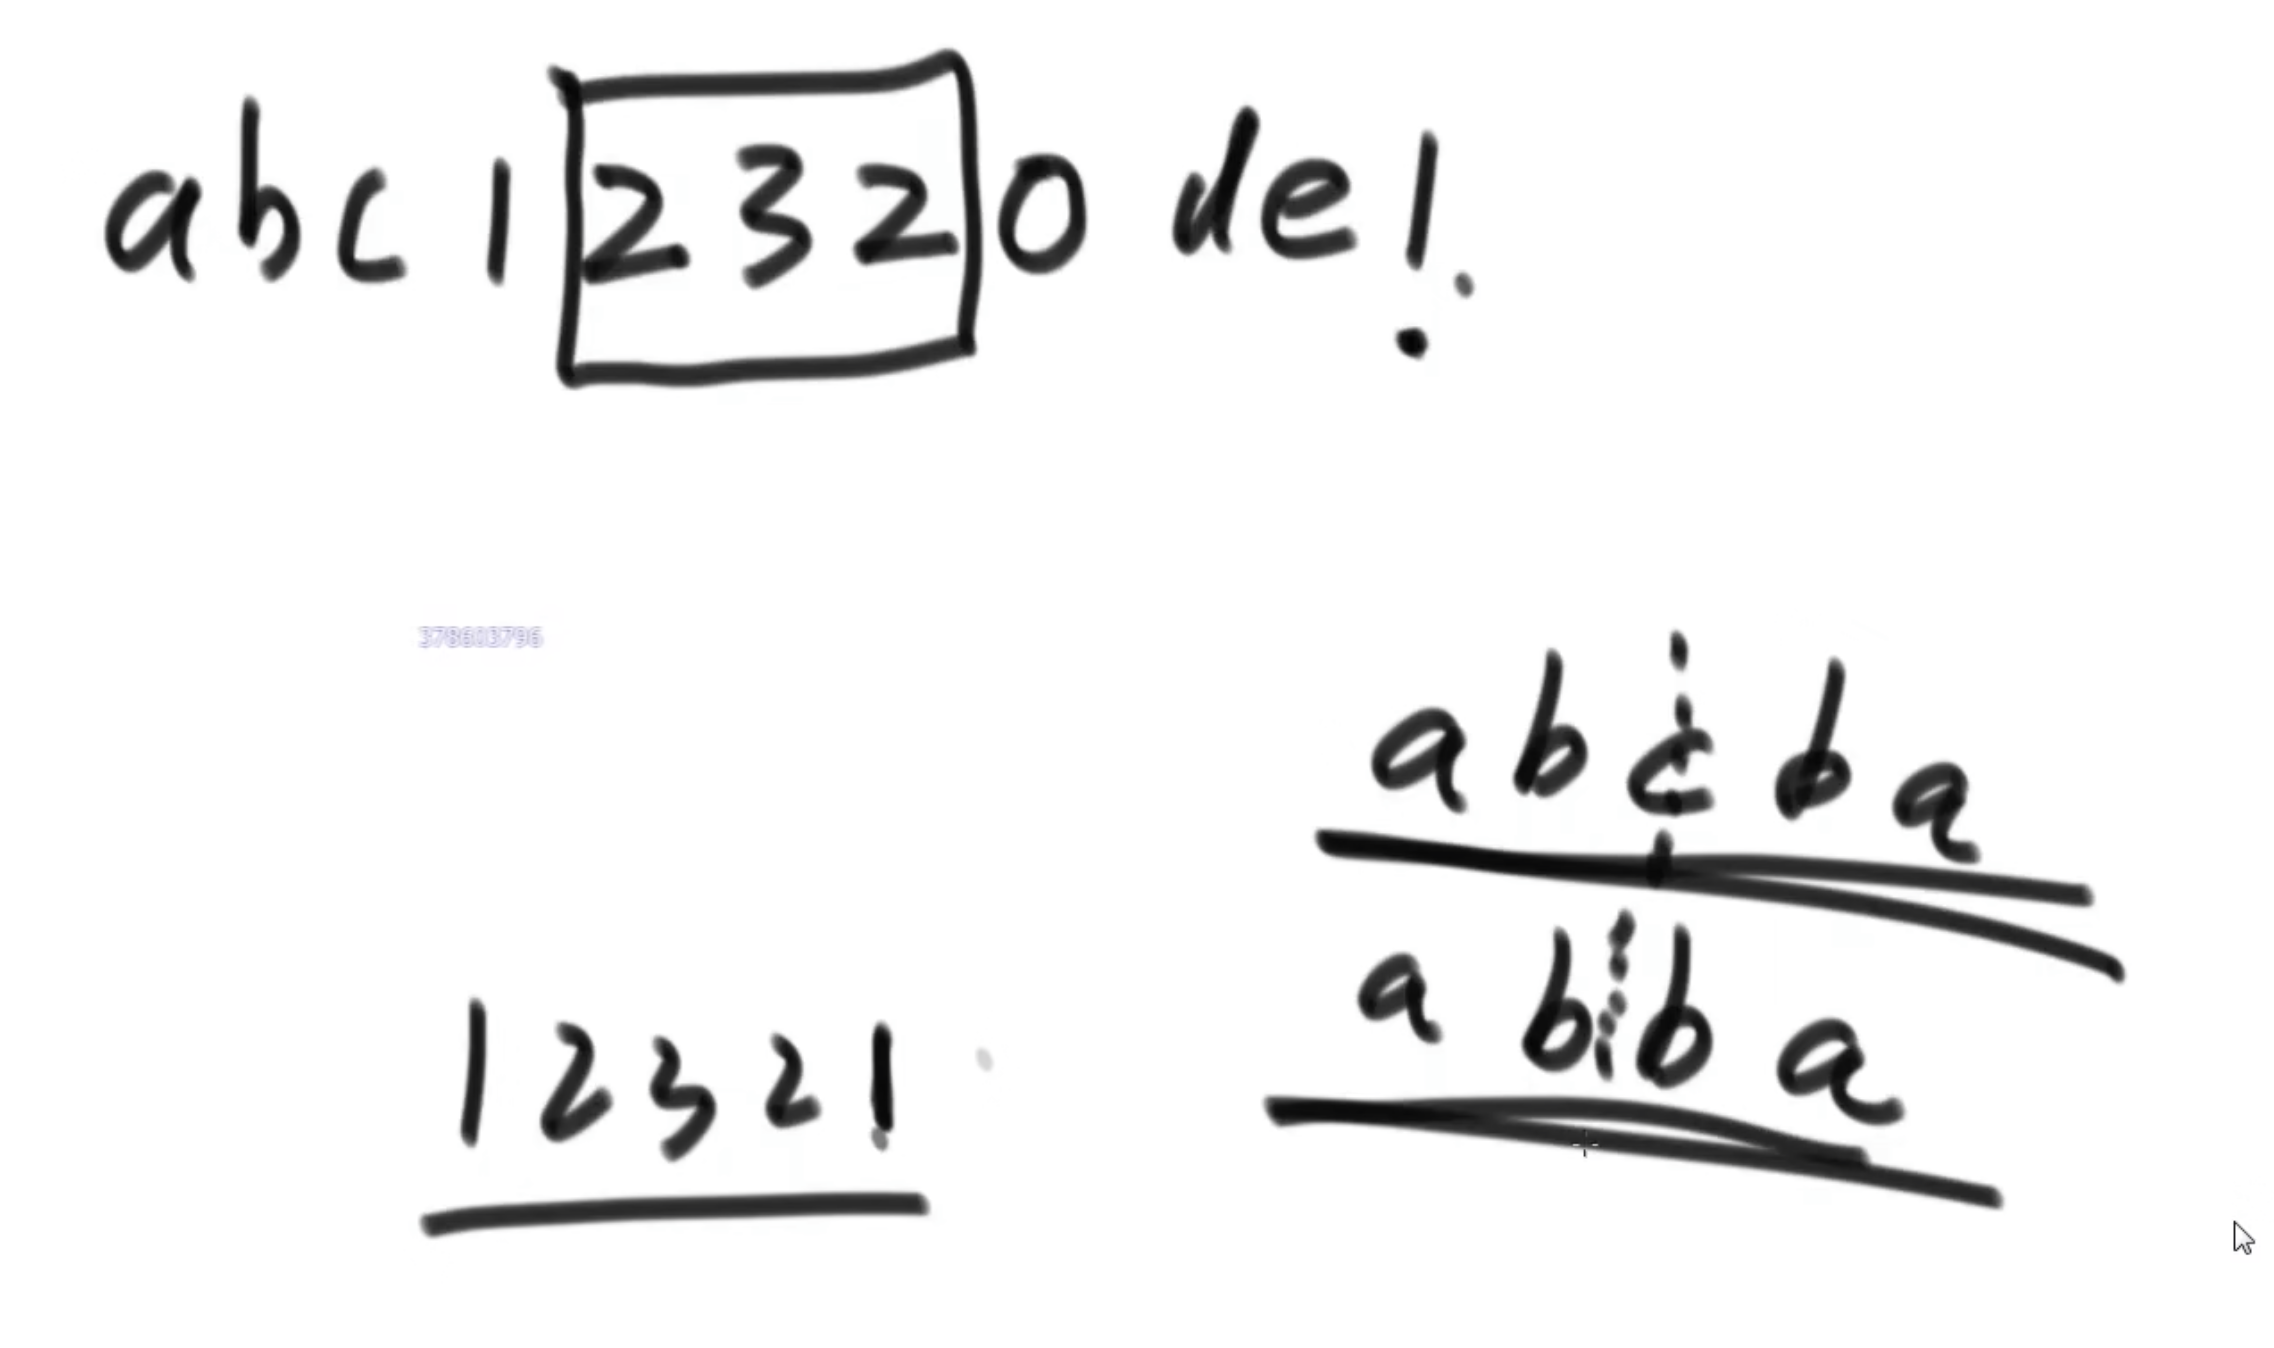 abc12320de!
378603796
abcba
abba
12321